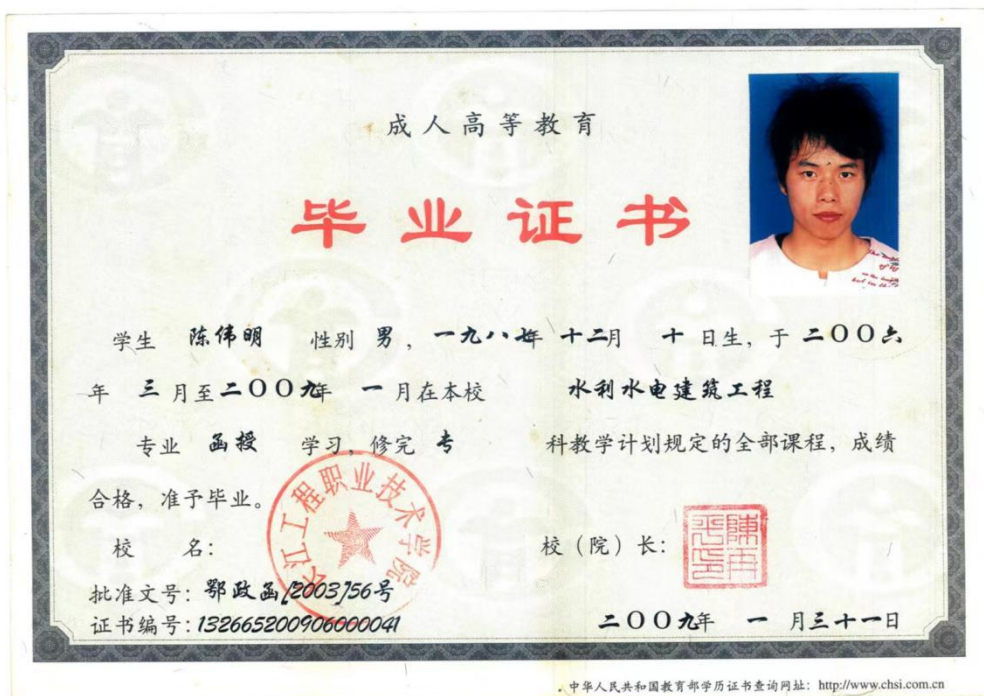 成人高等教育
毕业证书
学生 陈伟明 性别 男，一九八七年 十二月 十日生，于二〇〇六
年 三月至二〇〇九年 一月在本校 水利水电建筑工程
专业 函授 学习，修完 专 科教学计划规定的全部课程，成绩
合格，准予毕业。
校 名：
长江工程职业技术学院
校（院）长：
批准文号：鄂政函[2003]56号
证书编号：132665200906000041
二〇〇九年 一 月三十一日
中华人民共和国教育部学历证书查询网址：http://www.chsi.com.cn